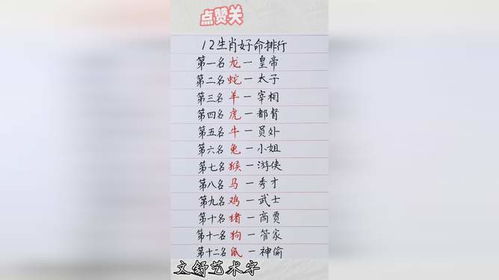 点赞关
12生肖好命排行
第一名龙一皇帝
第二名蛇一太子
第三名羊一宰相
第四名虎一都督
第五名牛一员外
第六名兔一小姐
第七名猴一游侠
第八名马一秀才
第九名鸡一武士
第十名猪一商贾
第十一名狗一管家
第十二名鼠一神偷
文舒艺术字